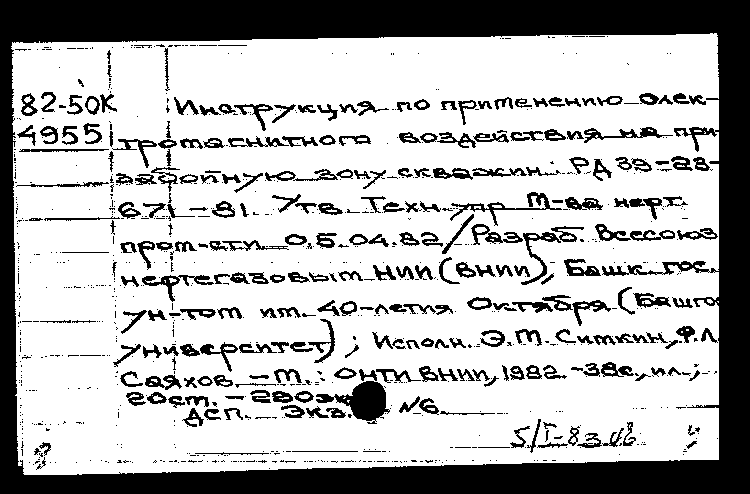 82-50К Инструкция по применению элек-
4955 тромагнитного воздействия на при-
забойную зону скважин: РД 39-23-
671-81. Утв. Техн. упр. М-ва нефт.
пром-сти 05.04.82/Разраб. Всесоюз
нефтегазовым НИИ (ВНИИ), Башк. гос.
ун-том им. 40-летия Октября (Башгос
университет); Исполн. Э.М. Симкин, Ф.Л.
Саяхов. - М.: ОНТИ ВНИИ, 1982. - 38с., ил.;
20см. - 280экз
ДСП. Экз. №6.
5/I-83